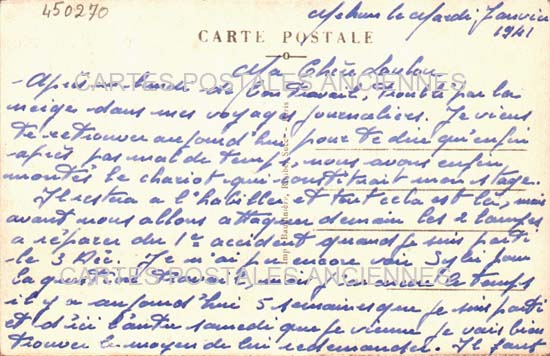 450270
Melun le Mardi Janvier
1941
CARTE POSTALE
Ma Chère Loulou
CARTES POSTALES ANCIENNES
Après un lundi de bon travail, troublé par la
neige dans mes voyages journaliers. Je viens
te retrouver aujourd'hui pour te dire qu'enfin
après pas mal de temps, nous avons enfin
montés le chariot qui constituait mon stage.
Il restera a l'habiller et tout cela est là, mais
avant nous allons attaquer demain les 2 lampes
a réparer du 1er accident quand je suis parti
le 3 Déc. Je n'ai pas encore vu pour
CARTES POSTALES ANCIENNES
la question travail mais j'ai encore le temps
il y a aujourd'hui 5 semaines que je suis parti
et d'ici l'autre samedi que je vienne je vais bien
trouver le moyen de lui redemander. Il faut